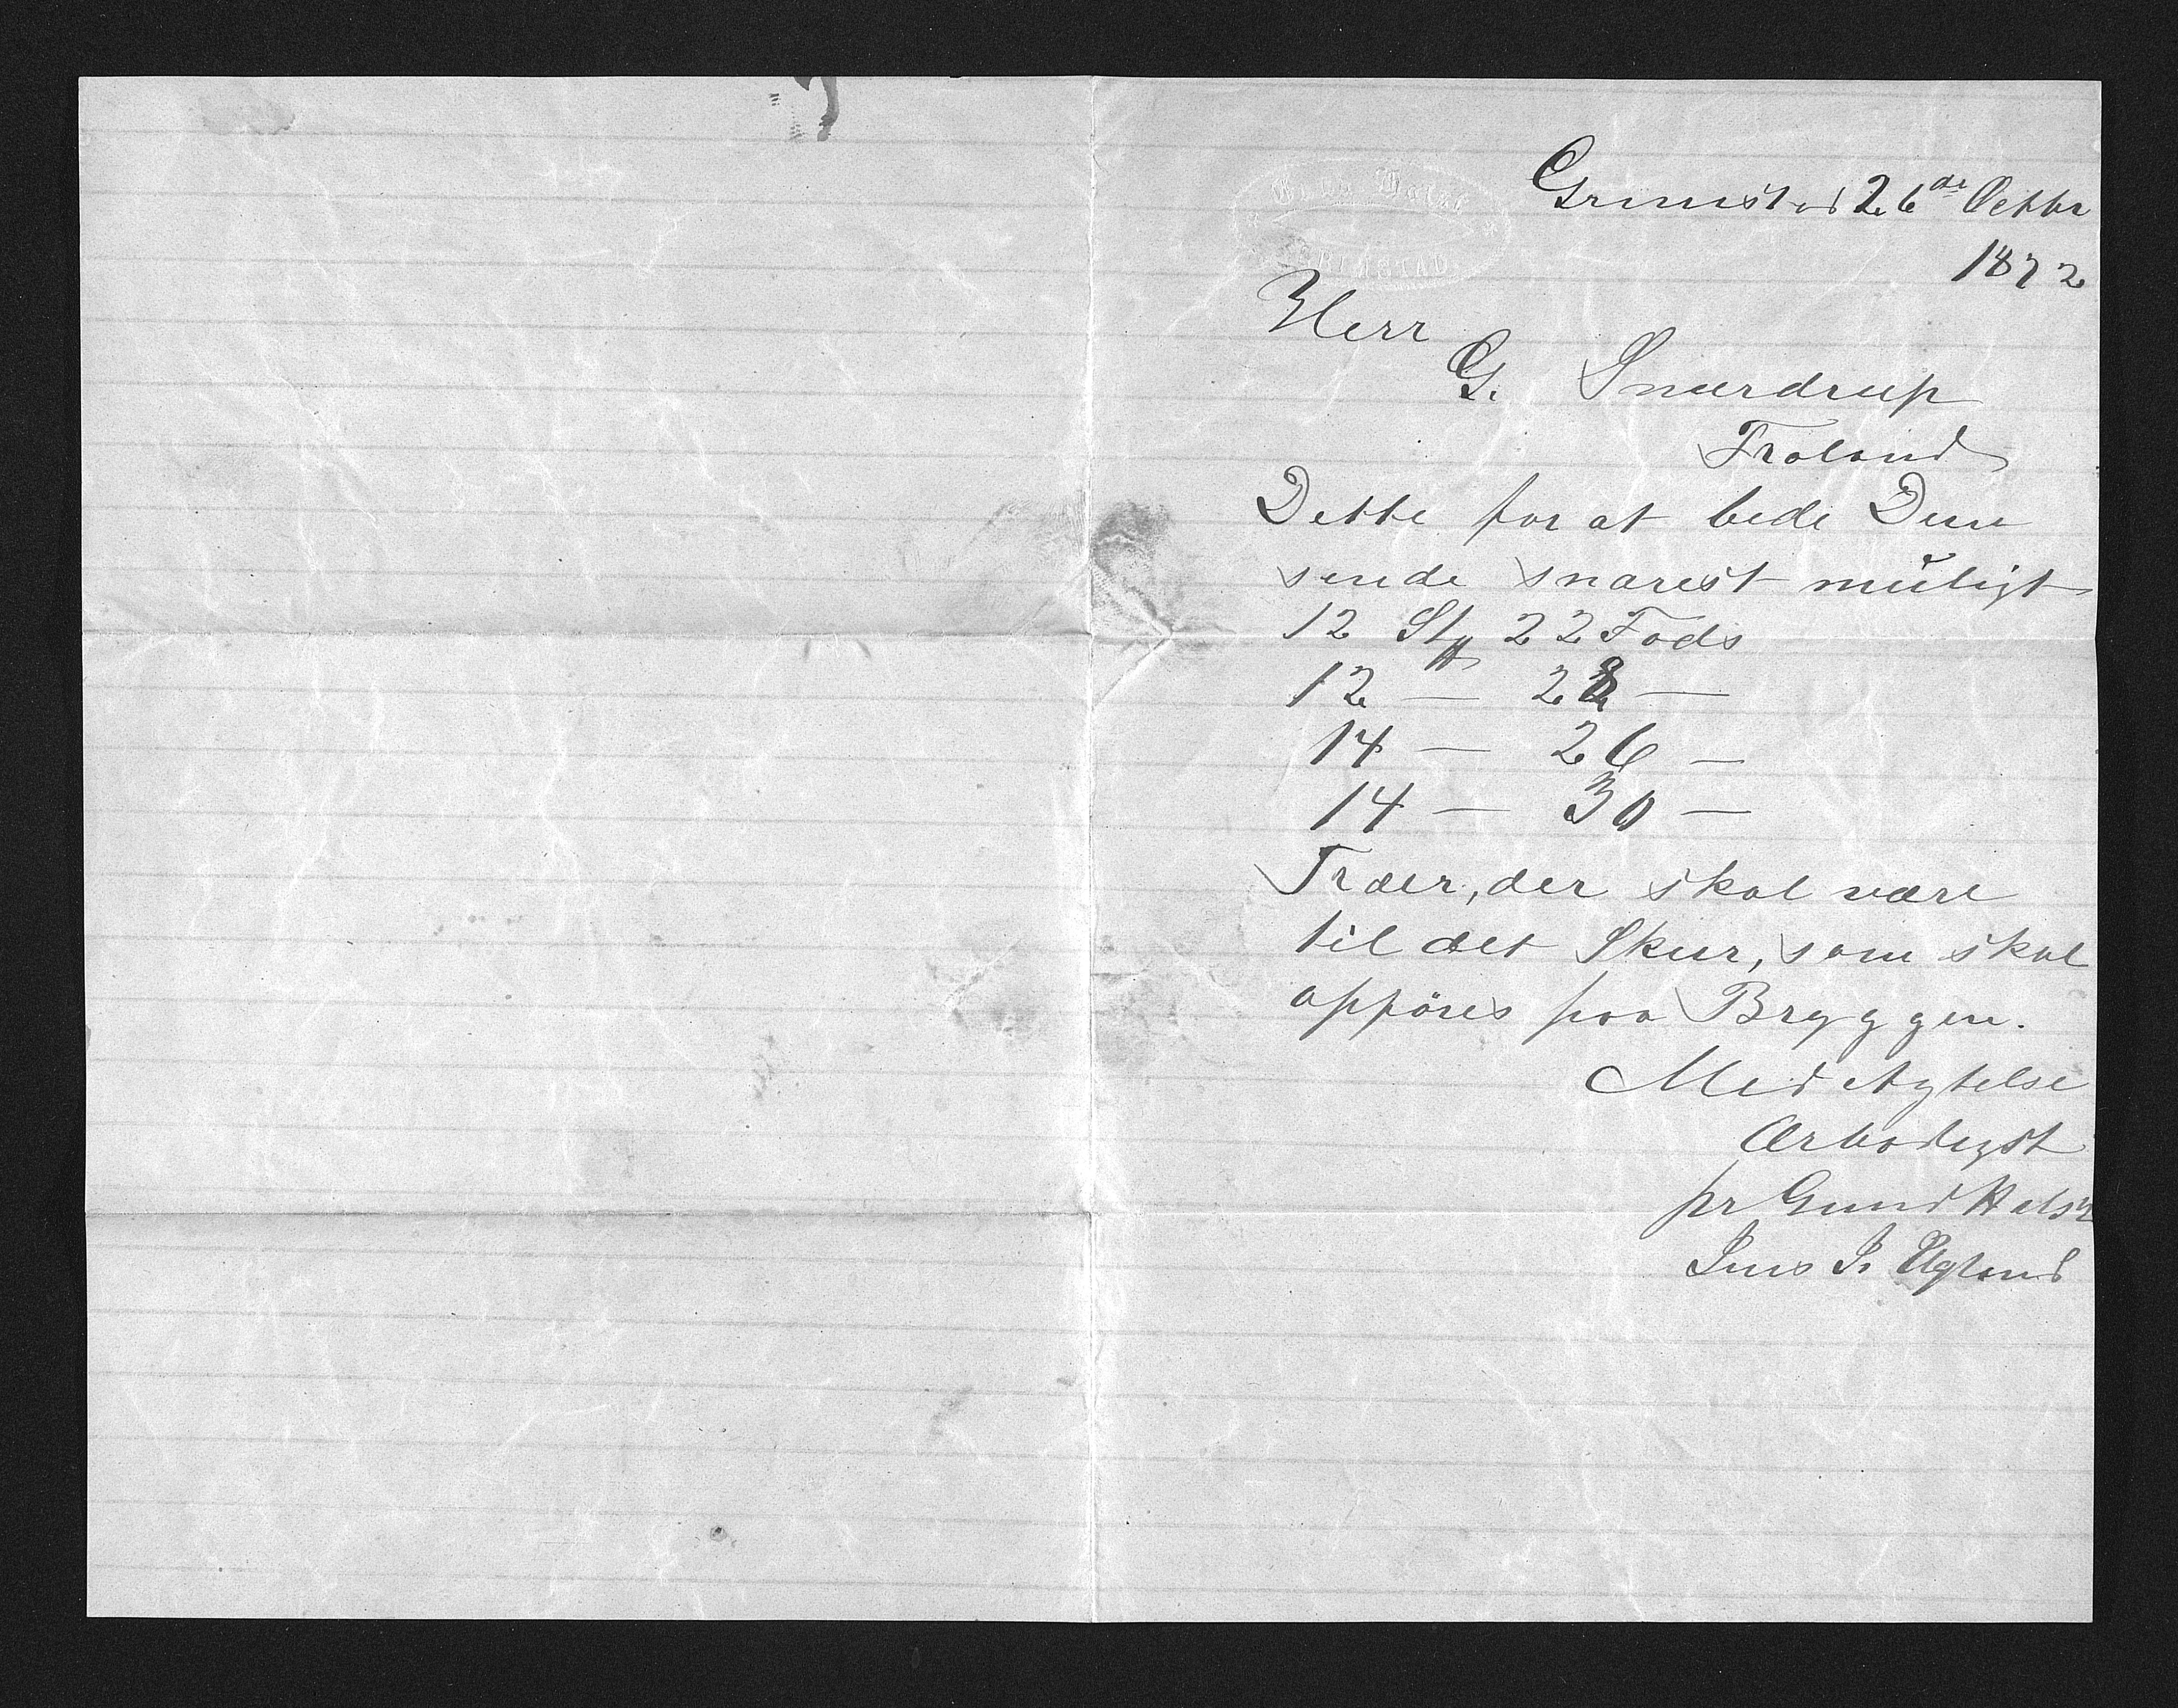 Grimstad 26de Octbr
1872
Herr
G. Smerdrup
Froland
Dette for at bede Dem
sende snarest muligt
12 Stk 22 Fods
12 — 28 —
14 — 26 —
14 — 30 —
Træer, der skal være
til det Skur, som skal
opföres paa Bryggen.
Med Agtelse
Ærbødigst
pr Gund
Jens J. Ugland
GRIMSTAD